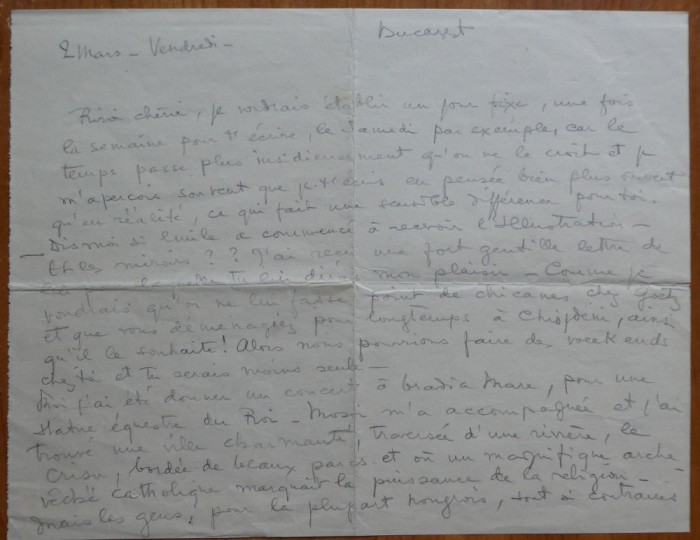 2 Mars - Vendredi -
Bucarest
chérie, je voudrais établir un jour fixe, une fois
la semaine pour t'écrire, le Samedi par exemple, car le
temps passe plus insidieusement qu'on ne le croit et je
m'aperçois souvent que je t'écris en pensée bien plus souvent
qu'en réalité, ce qui fait une sensible différence pour toi.
Dis moi si a commencé à recevoir l'Illustration -
Et les miroirs ? ? J'ai reçu une fort gentille lettre de
tu lui diras mon plaisir - Comme je
voudrais qu'on ne lui fasse point de chicanes chez
et que vous déménagiez pour longtemps à ainsi
qu'il le souhaite ! Alors nous pourrions faire des week ends
chez toi et tu serais moins seule -
Moi j'ai été donner un concert à Oradia Mare, pour une
statue équestre du Roi - m'a accompagnée et j'ai
trouvé une ville charmante, traversée d'une rivière, le
Crisu, bordée de beaux parcs et où un magnifique arche-
vêché catholique marquait la puissance de la religion -
mais les gens, pour la plupart hongrois, sont si contraires